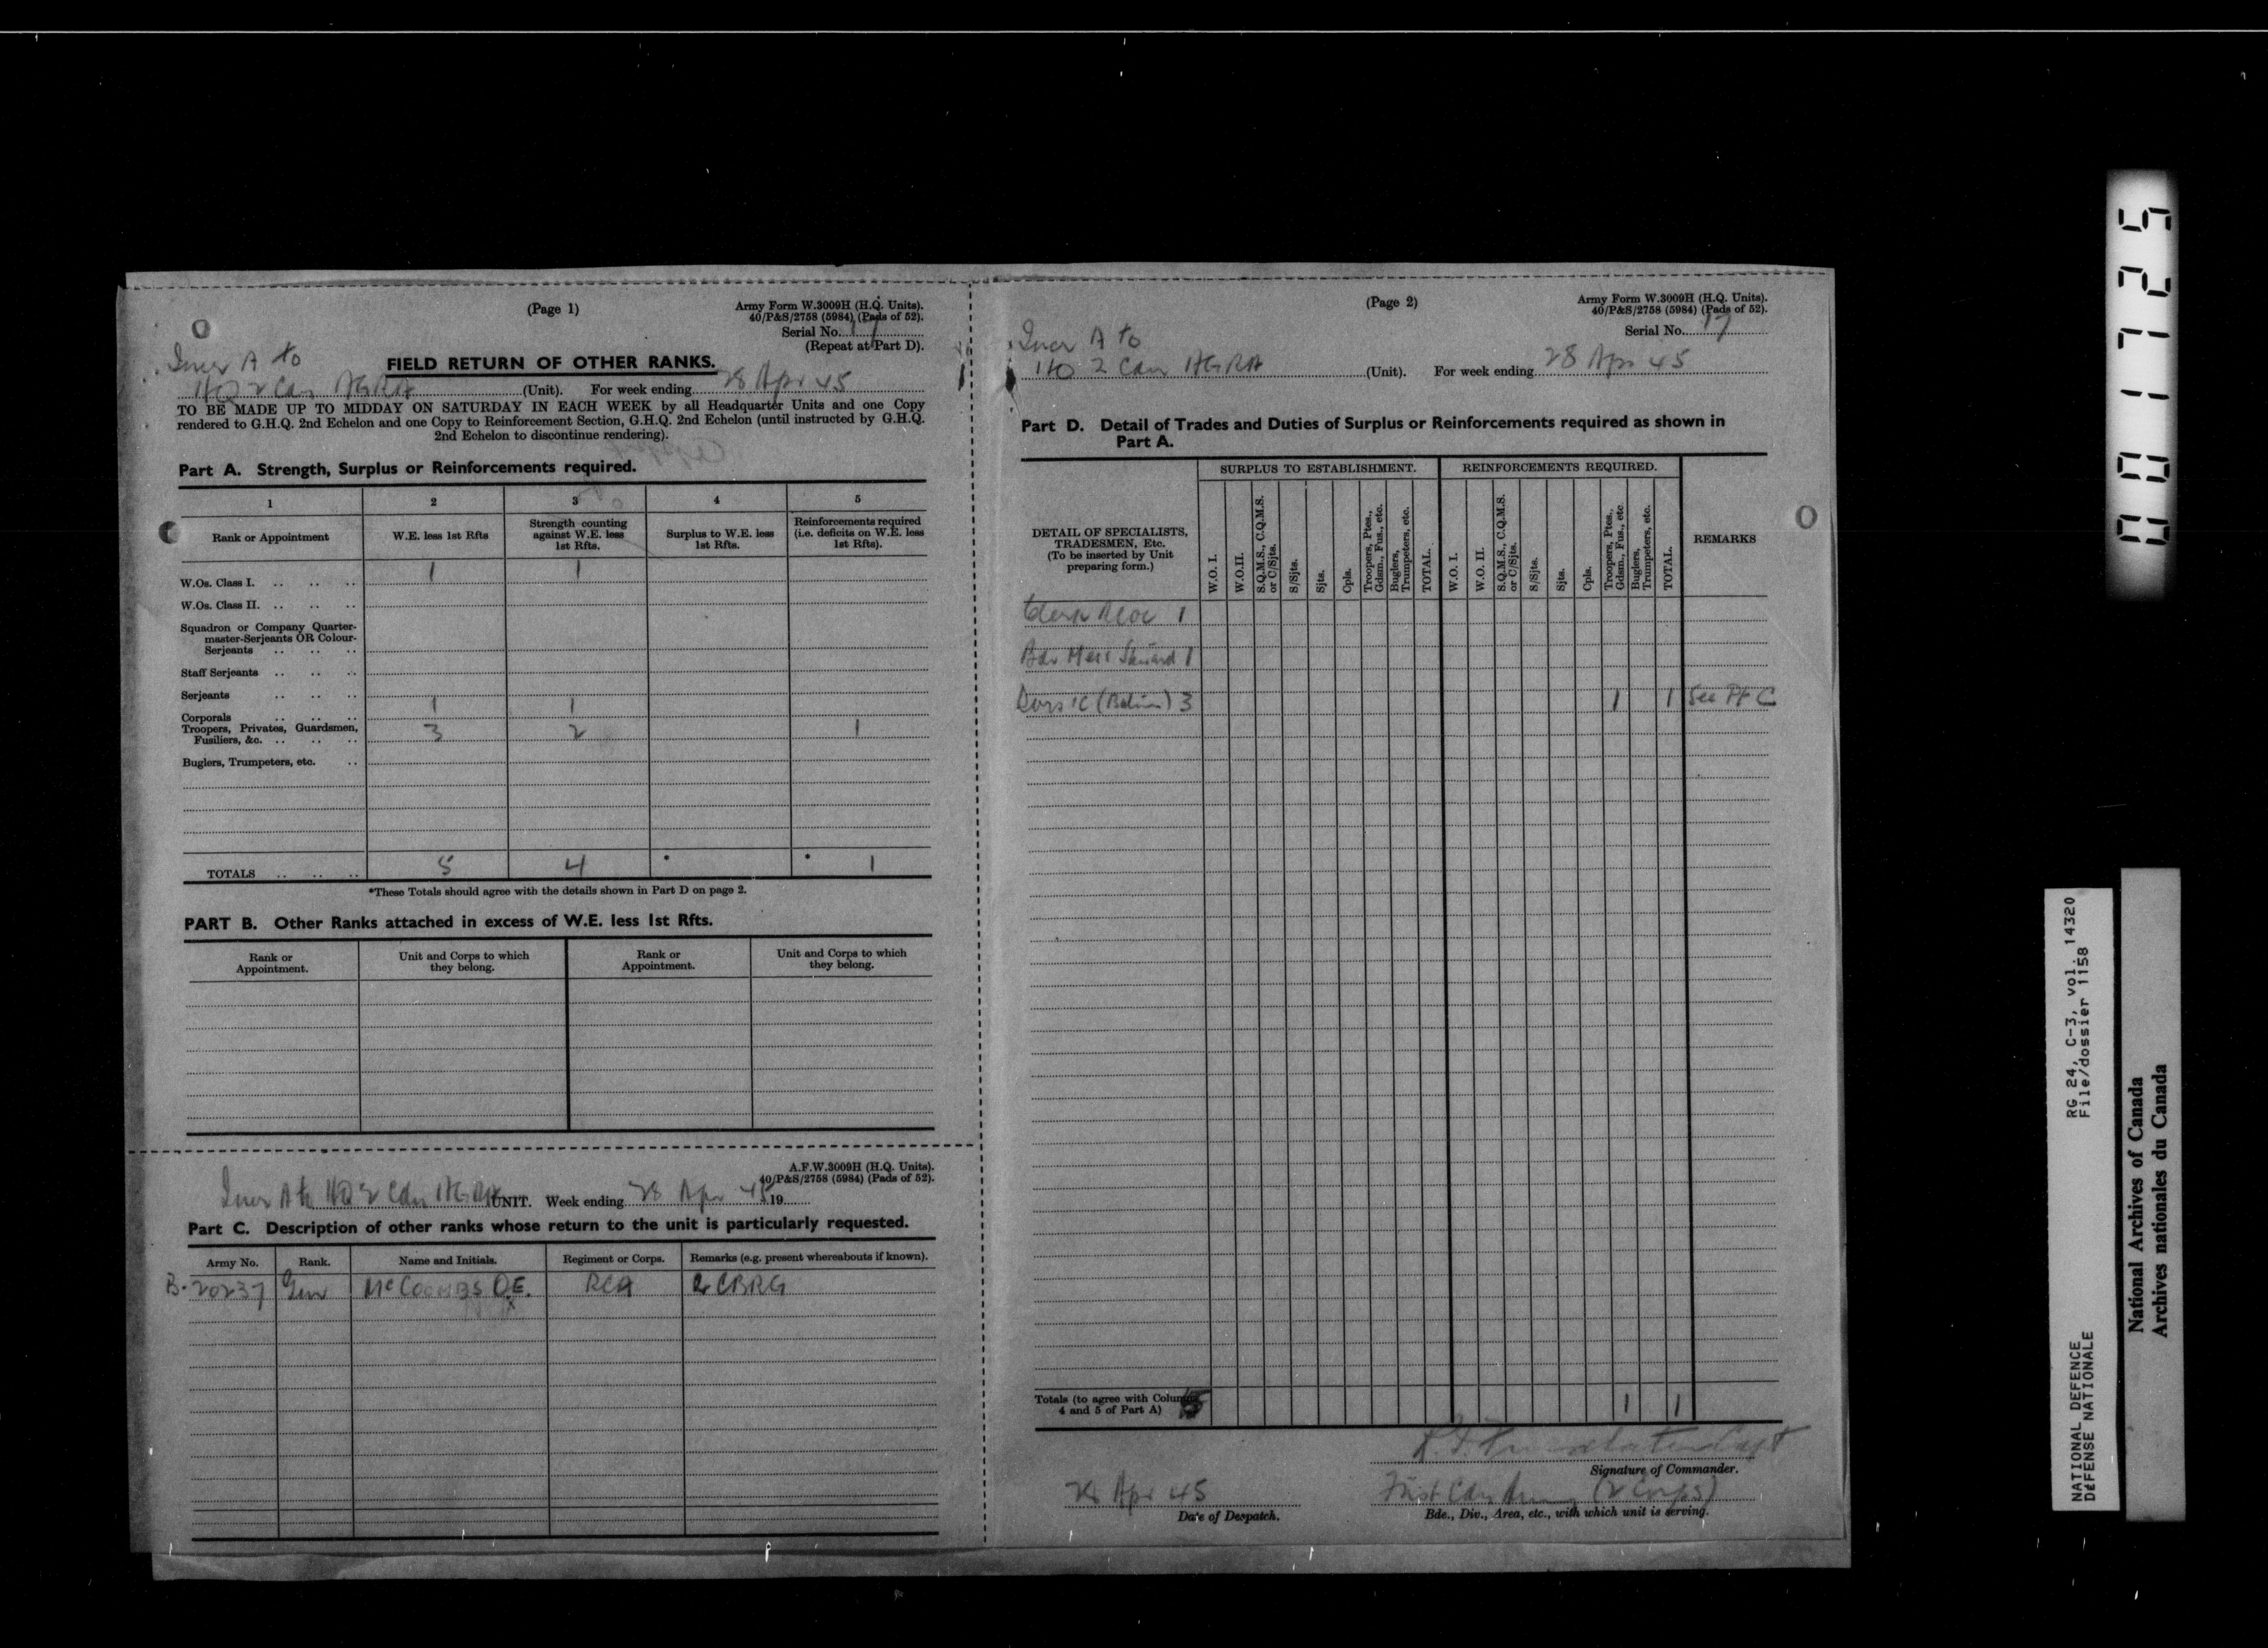 (Page 1)
Army Form W.3009H (H.Q. Units).
40/P&S/2758 (5984) (Pads of 52).
Serial No. 17
(Repeat at Part D).
Incr A to
FIELD RETURN OF OTHER RANKS.
HQ 2 Cdn AGRA (Unit). For week ending 28 Apr 45
TO BE MADE UP TO MIDDAY ON SATURDAY IN EACH WEEK by all Headquarter Units and one Copy
rendered to G.H.Q. 2nd Echelon and one Copy to Reinforcement Section, G.H.Q. 2nd Echelon (until instructed by G.H.Q.
2nd Echelon to discontinue rendering).
Part A. Strength, Surplus or Reinforcements required.
1 2 3 4 5
Rank or Appointment
W.E. less 1st Rfts
Strength counting
against W.E. less
1st Rfts.
Surplus to W.E. less
1st Rfts.
Reinforcements required
(i.e. deficits on W.E. less
1st Rfts).
W.Os. Class I. .. .. .. 1 1
W.Os. Class II. .. .. ..
Squadron or Company Quarter-
master-Serjeants OR Colour-
Serjeants .. .. ..
Staff Serjeants .. .. ..
Serjeants .. .. ..
Corporals .. .. .. 1 1
Troopers, Privates, Guardsmen,
Fusiliers, &c. .. .. .. 3 2 1
Buglers, Trumpeters, etc. ..
TOTALS .. .. .. 5 4 * * 1
*These Totals should agree with the details shown in Part D on page 2.
PART B. Other Ranks attached in excess of W.E. less 1st Rfts.
Rank or
Appointment.
Unit and Corps to which
they belong.
Rank or
Appointment.
Unit and Corps to which
they belong.
A.F.W.3009H (H.Q. Units).
40/P&S/2758 (5984) (Pads of 52).
Incr A to HQ 2 Cdn AGRA UNIT. Week ending 28 Apr 45 19
Part C. Description of other ranks whose return to the unit is particularly requested.
Army No. Rank. Name and Initials. Regiment or Corps. Remarks (e.g. present whereabouts if known).
B-20237 Gnr McCoombs O.E. RCA 2 CBRG
(Page 2)
Army Form W.3009H (H.Q. Units).
40/P&S/2758 (5984) (Pads of 52).
Serial No. 17
Incr A to
HQ 2 Cdn AGRA (Unit). For week ending 28 Apr 45
Part D. Detail of Trades and Duties of Surplus or Reinforcements required as shown in
Part A.
DETAIL OF SPECIALISTS,
TRADESMEN, Etc.
(To be inserted by Unit
preparing form.)
SURPLUS TO ESTABLISHMENT.
W.O. I.
W.O.II.
S.Q.M.S., C.Q.M.S.
or C/Sjts.
S/Sjts.
Sjts.
Cpls.
Troopers, Ptes.,
Gdsm., Fus., etc.
Buglers,
Trumpeters, etc.
TOTAL.
REINFORCEMENTS REQUIRED.
W.O. I.
W.O. II.
S.Q.M.S., C.Q.M.S.
or C/Sjts.
S/Sjts.
Sjts.
Cpls.
Troopers, Ptes.,
Gdsm., Fus., etc.
Buglers,
Trumpeters, etc.
TOTAL.
REMARKS
Clerk 1
Mess 1
IC 3 1 1 See Pt C
Totals (to agree with Columns
4 and 5 of Part A) 1 1
Capt
Signature of Commander.
28 Apr 45
Date of Despatch.
First Cdn Army (2 Corps)
Bde., Div., Area, etc., with which unit is serving.
001725
RG 24, C-3, vol. 14320
File/dossier 1158
NATIONAL DEFENCE
DÉFENSE NATIONALE
National Archives of Canada
Archives nationales du Canada